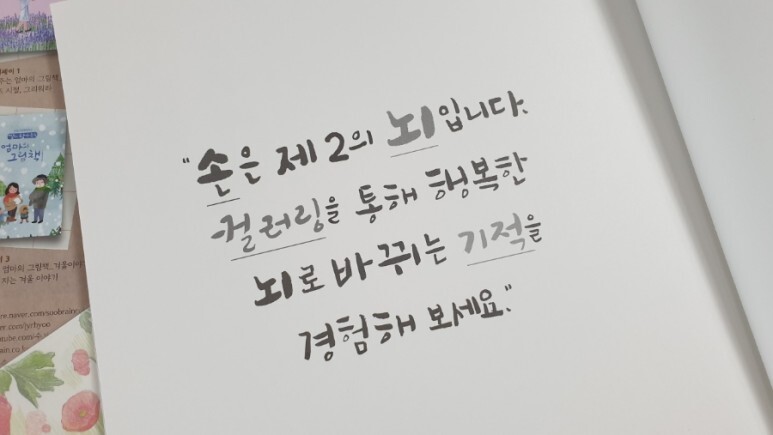 "손은 제 2의 뇌입니다.
컬러링을 통해 행복한
뇌로 바뀌는 기적을
경험해 보세요."
엄마의
그림책